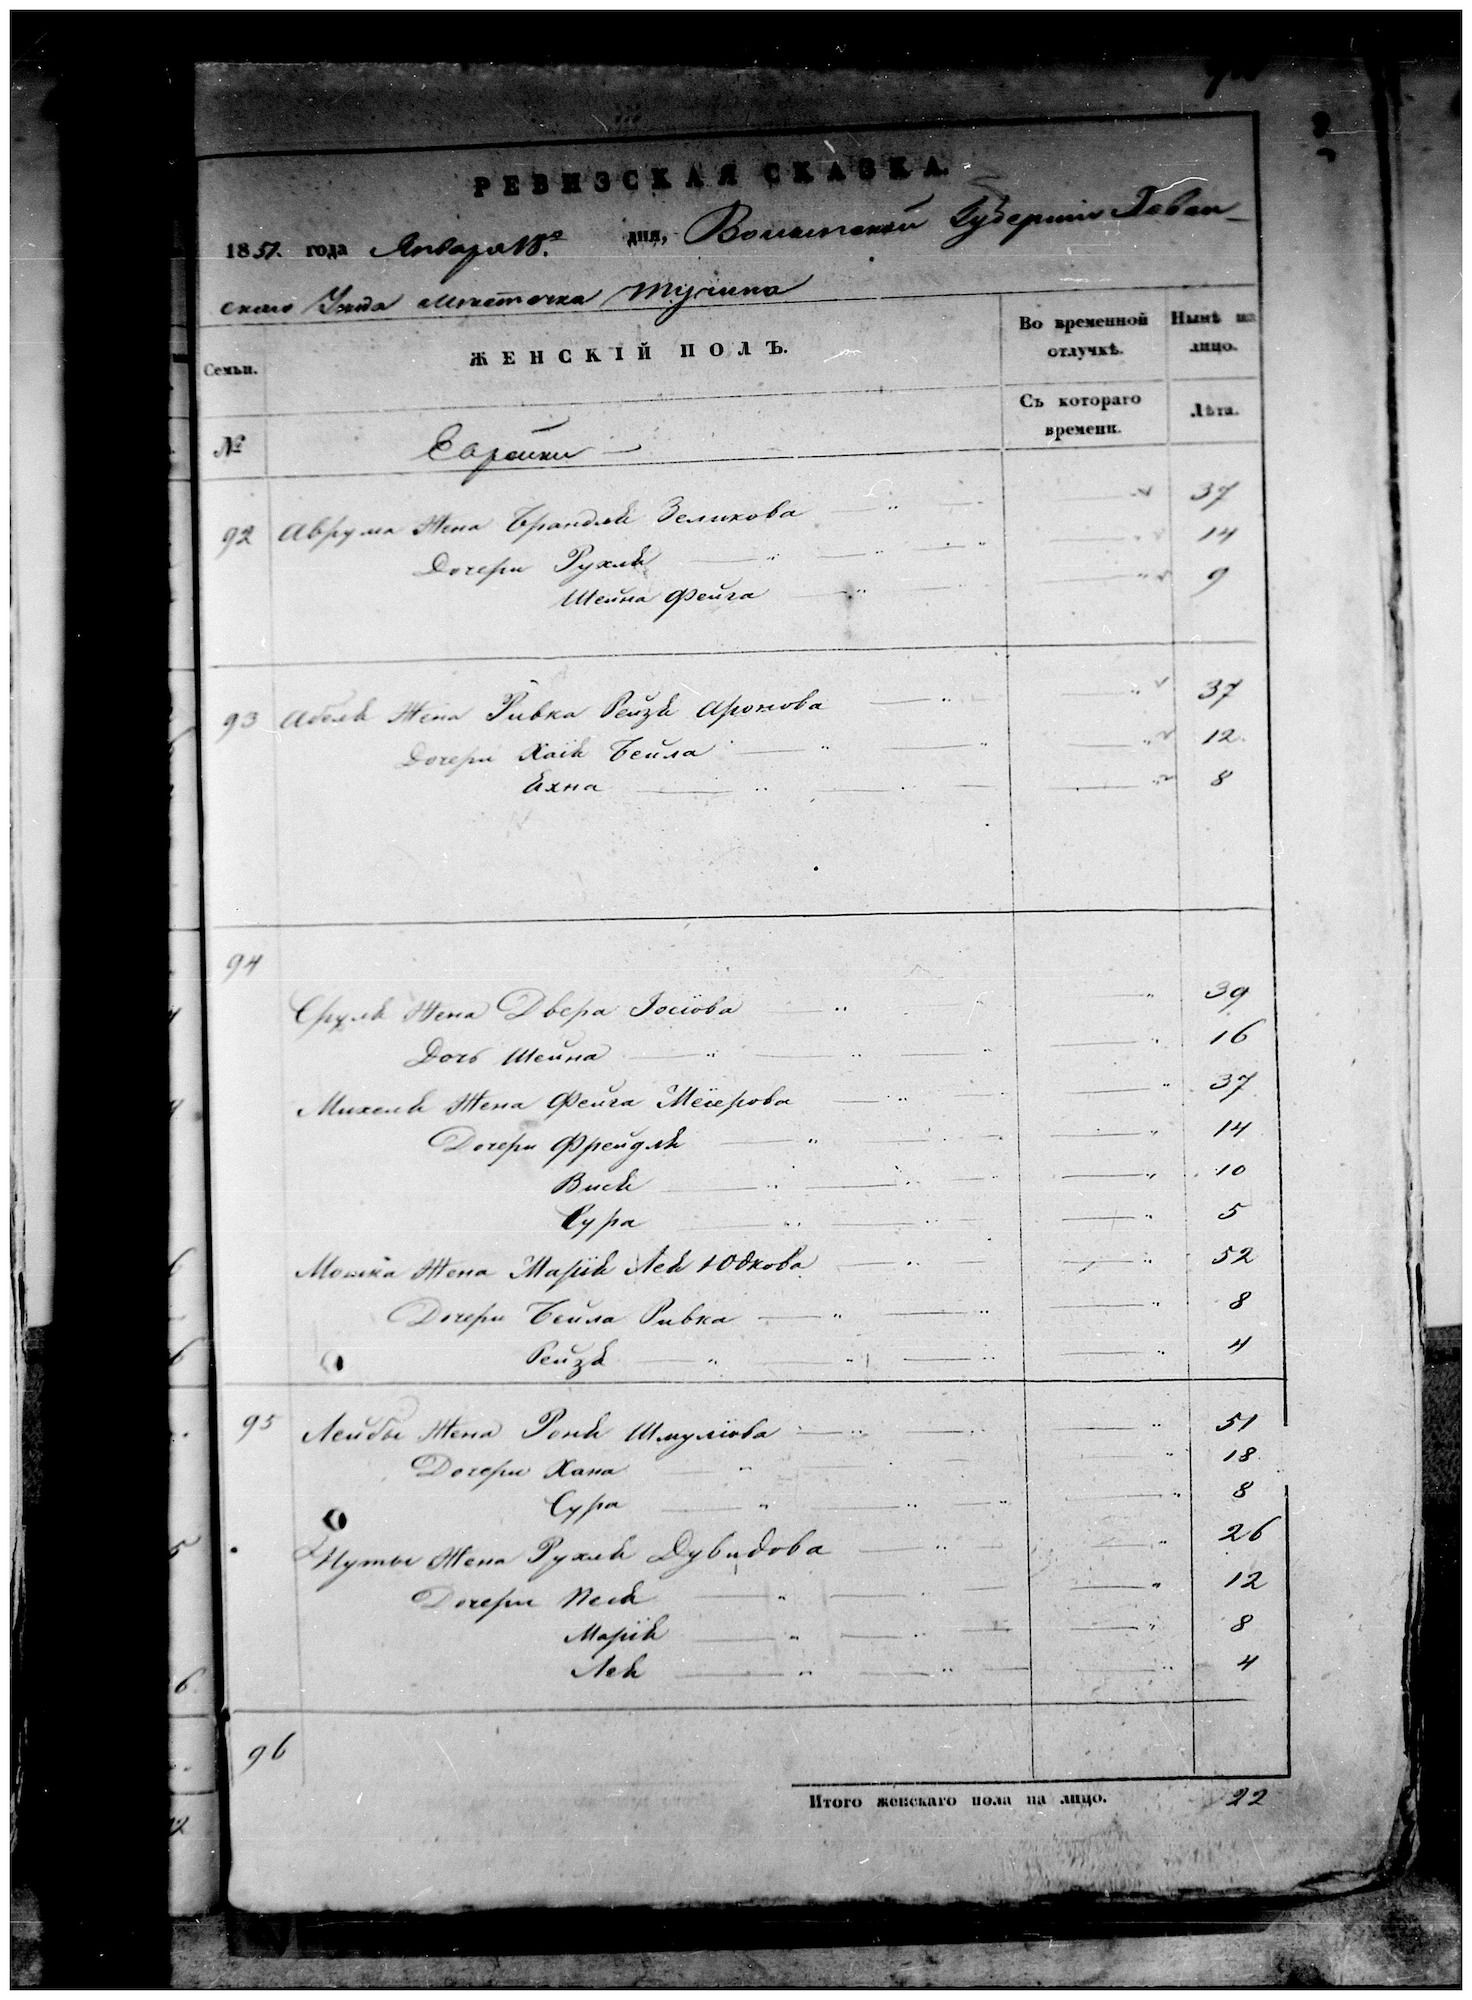 РЕВИЗСКАЯ СКАЗКА.
1851. года Января 18го дня, Волынской Губернии Ровен-
скаго Уезда местечка Тучина
Семьи. ЖЕНСКІЙ ПОЛЪ. Во временной отлучкѣ. Нынѣ на лицо.
№ Еврейки Съ котораго времени. Лѣта.
92 Аврума Жена Брандлѣ Зеликова 37
Дочери Рухлѣ 14
Шейна Фейга 9
93 Абелѣ Жена Ривка Рейзѣ Аронова 37
Дочери Хаіѣ Бейла 12
Ехна 8
94
Срулѣ Жена Двера Іосіова 39
Дочь Шейна 16
Михелѣ Жена Фейга Меіерова 37
Дочери Фрейдлѣ 14
Висѣ 10
Сура 5
Мошка Жена Маріѣ Леѣ Юдкова 52
Дочери Бейла Ривка 8
Рейзѣ 4
95 Лейбы Жена Ронѣ Шмуліова 51
Дочери Хана 18
Сура 8
Нуты Жена Рухлѣ Дувидова 26
Дочери Песѣ 12
Маріѣ 8
Леѣ 4
96
Итого женскаго пола на лицо. 22